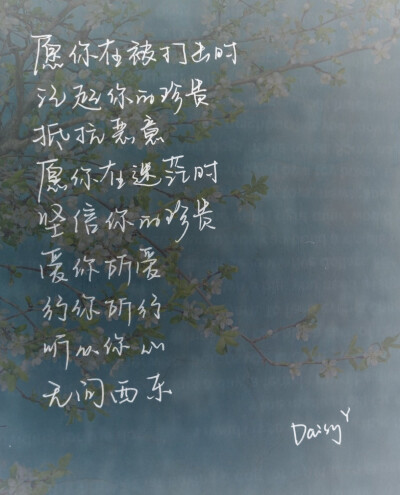 愿你在被打击时
记起你的珍贵
抵抗恶意
愿你在迷茫时
坚信你的珍贵
爱你所爱
行你所行
听从你心
无问西东
Daisy